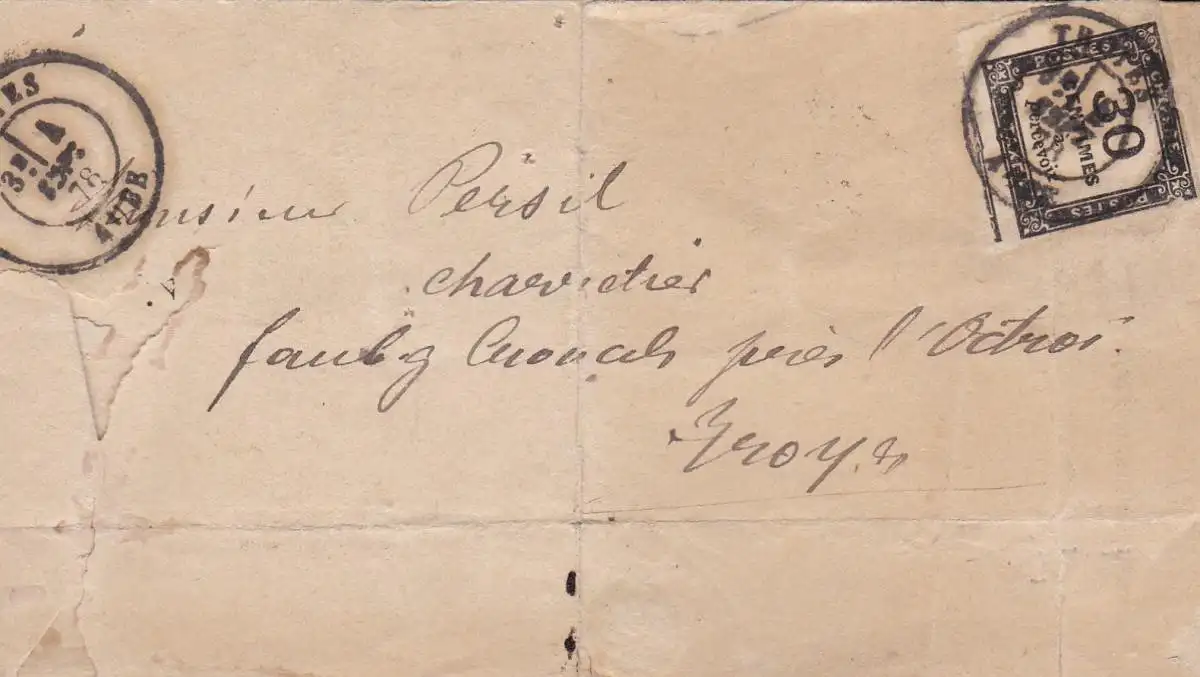 TROYES
POSTES
30
CENTIMES
à
percevoir
POSTES
YES
3E
4
78
AUBE
Monsieur Persil
charcutier
faubg Croncels près l'Octroi.
Troyes